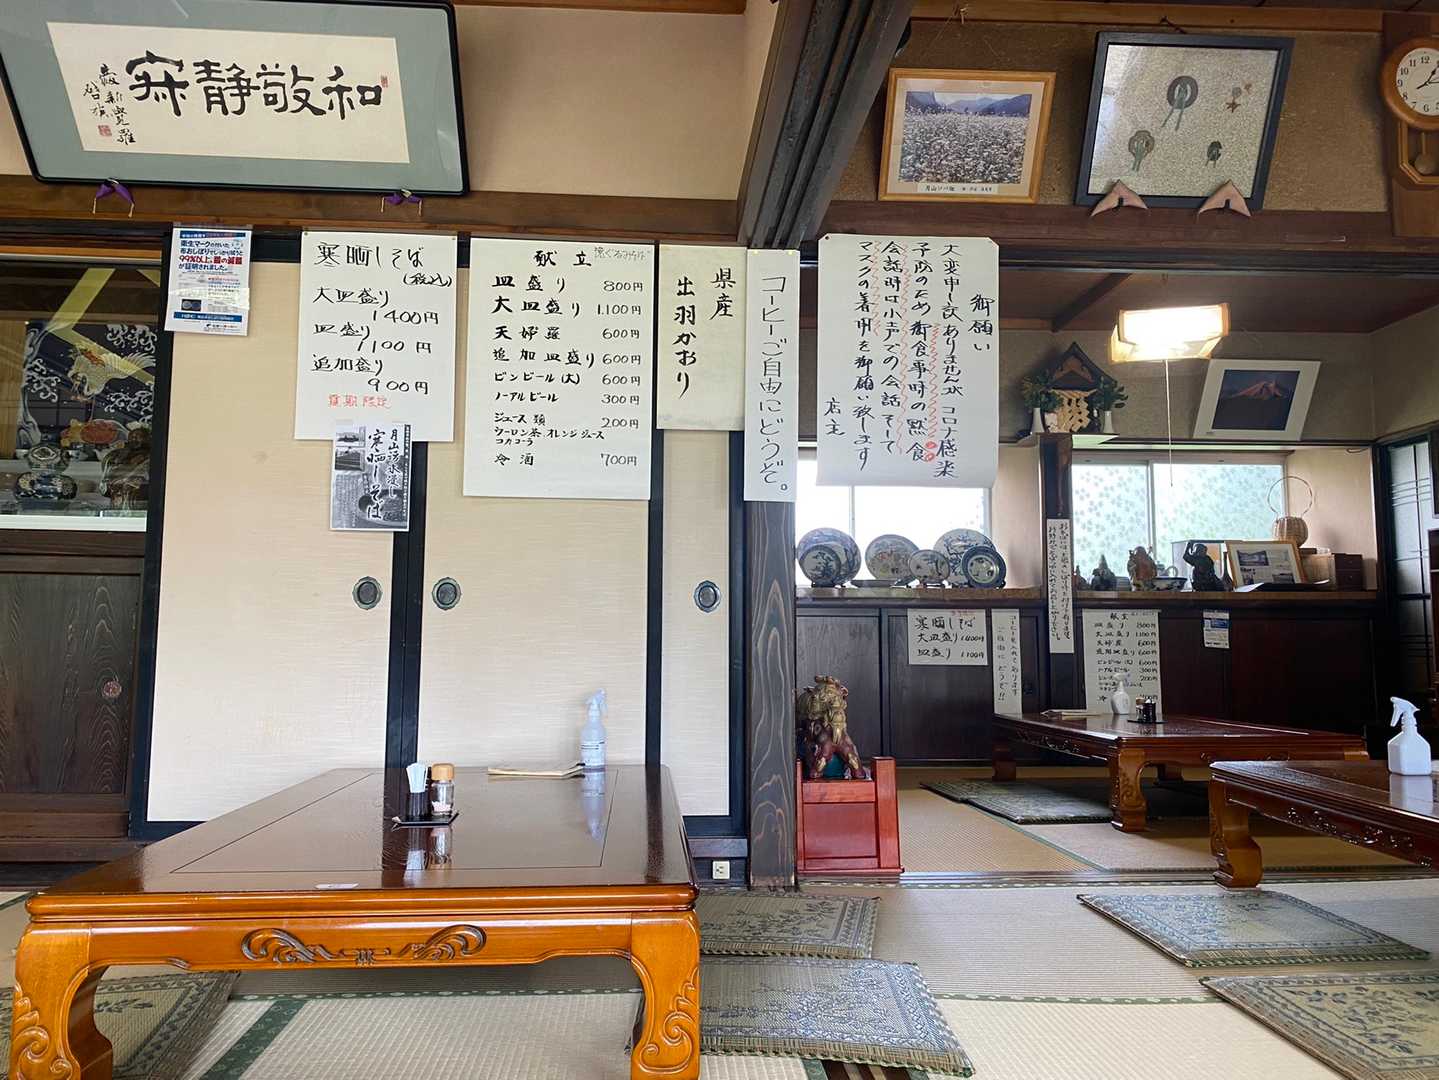 和敬静寂
衛生マークの付いた
布おしぼりでしっかり拭うと
99%以上、菌の減菌
が証明されました。
寒晒しそば
(税込)
大皿盛り
1400円
皿盛り
1100円
追加盛り
900円
夏期限定
月山湧水浸し
寒晒しそば
献立
皿盛り 800円
大皿盛り 1.100円
天婦羅 600円
追加皿盛り 600円
ビンビール(大) 600円
ノーアルビール 300円
ジュース類 200円
ウーロン茶 オレンジジュース
コカコーラ
冷酒 700円
県産
出羽かおり
コーヒーご自由にどうぞ。
御願い
大変申し訳ありませんが コロナ感染
予防のため 御食事時の黙食
会話時は小声での会話 そして
マスクの着用を御願い致します
店主
月山ソバ畑
寒晒しそば
大皿盛り 1400円
皿盛り 1100円
コーヒーを入れてあります
ご自由に どうぞ!!
献立
皿盛り 800円
大皿盛り 1100円
天婦羅 600円
追加皿盛り 600円
ビンビール(大) 600円
ノーアルビール 300円
ジュース類 200円